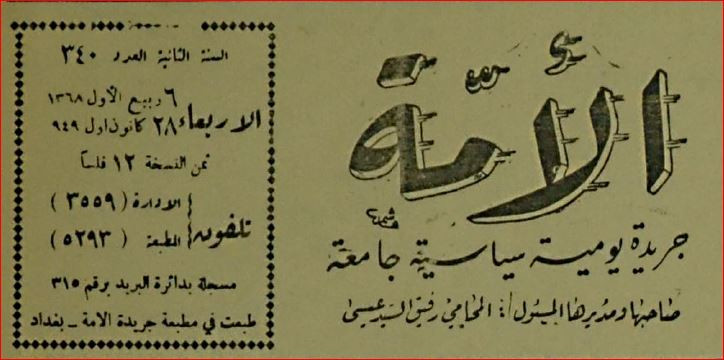 الأمّة
جريدة يومية سياسية جامعة
صاحبها ومديرها المسئول : المحامي رفيق السيد عيسى
السنة الثانية العدد ٣٤٠
الاربعاء ٦ ربيع الأول ١٣٦٨
٢٨ كانون اول ٩٤٩
ثمن النسخة ١٢ فلساً
تلفون الادارة ( ٣٥٥٩ )
المطبعة ( ٥٢٩٣ )
مسجلة بدائرة البريد برقم ٣١٥
طبعت في مطبعة جريدة الامة ـ بغداد